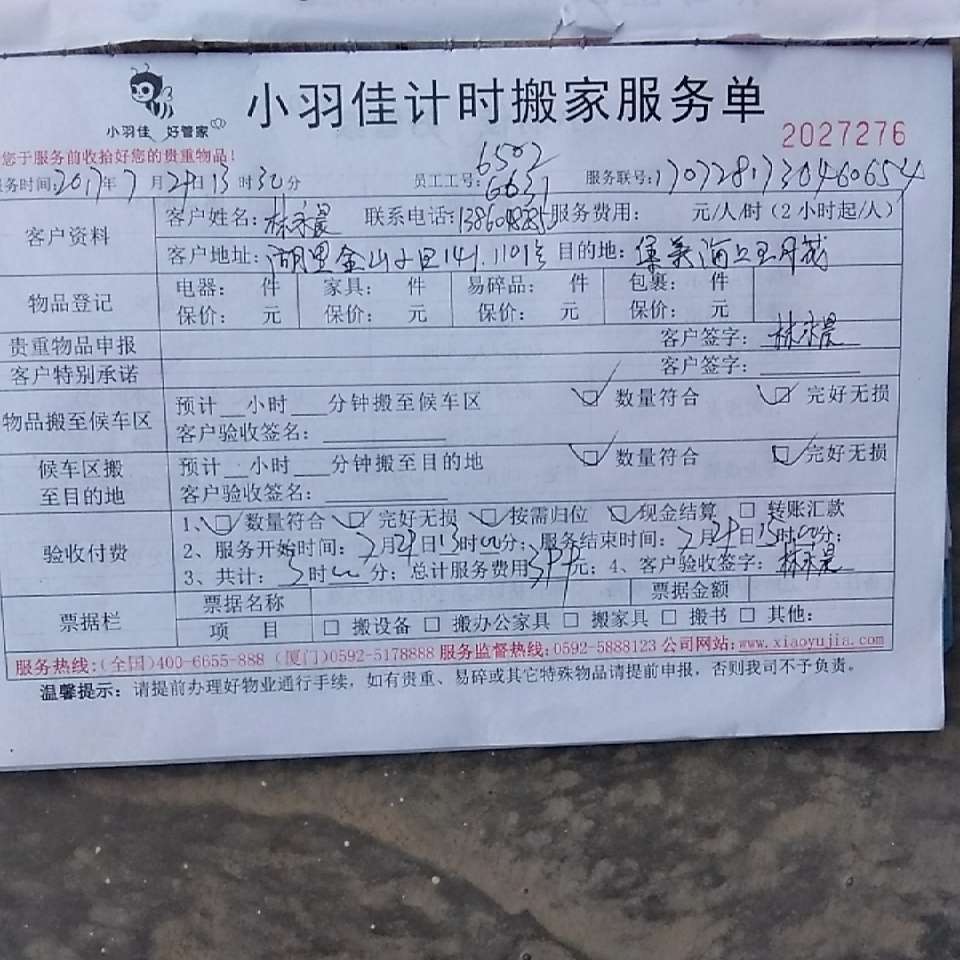 小羽佳 好管家
小羽佳计时搬家服务单
2027276
您于服务前收拾好您的贵重物品！
服务时间:2017年7月29日13时30分 员工工号:6502 6631 服务联号:
客户资料 客户姓名:林永晨 联系电话: 服务费用: 元/人/时（2小时起/人）
客户地址:湖里金山小区141.1101号 目的地:
物品登记 电器: 件 家具: 件 易碎品: 件 包裹: 件
保价: 元 保价: 元 保价: 元 保价: 元
贵重物品申报 客户签字:林永晨
客户特别承诺 客户签字:
物品搬至候车区 预计__小时___分钟搬至候车区 ☑ 数量符合 ☑ 完好无损
客户验收签名:
候车区搬至目的地 预计__小时___分钟搬至目的地 ☑ 数量符合 ☑ 完好无损
客户验收签名:
验收付费 1、☑ 数量符合 ☑ 完好无损 ☑ 按需归位 ☑ 现金结算 □ 转账汇款
2、服务开始时间: 7月29日13时00分; 服务结束时间: 7月29日15时00分;
3、共计: 时00分; 总计服务费用 元; 4、客户验收签字:林永晨
票据栏 票据名称 票据金额
项 目 □ 搬设备 □ 搬办公家具 □ 搬家具 □ 搬书 □ 其他:
服务热线:(全国)400-6655-888 (厦门)0592-5178888 服务监督热线:0592-5888123 公司网站:www.xiaoyujia.com
温馨提示: 请提前办理好物业通行手续，如有贵重、易碎或其它特殊物品请提前申报，否则我司不予负责。